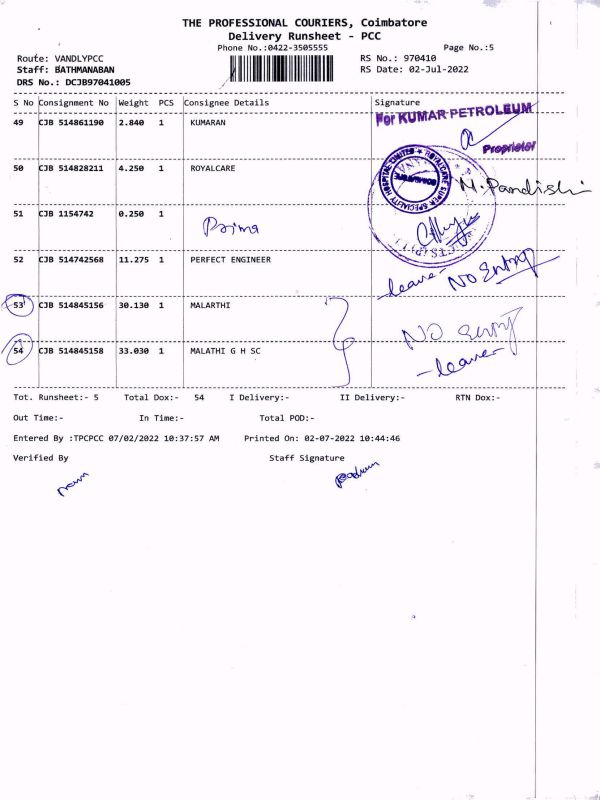 THE PROFESSIONAL COURIERS, Coimbatore
Delivery Runsheet - PCC
Phone No.:0422-3505555 Page No.:5
Route: VANDLYPCC RS No.: 970410
Staff: BATHMANABAN RS Date: 02-Jul-2022
DRS No.: DCJB97041005
S No Consignment No Weight PCS Consignee Details Signature
49 CJB 514861190 2.840 1 KUMARAN For KUMAR PETROLEUM
Proprietor
50 CJB 514828211 4.250 1 ROYALCARE M. Pandishi
ROYALCARE SUPER SPECIALITY HOSPITAL LIMITED
51 CJB 1154742 0.250 1
Prima
52 CJB 514742568 11.275 1 PERFECT ENGINEER
leave No Entry
53 CJB 514845156 30.130 1 MALARTHI
NO Entry
54 CJB 514845158 33.030 1 MALATHI G H SC
- leave
Tot. Runsheet:- 5 Total Dox:- 54 I Delivery:- II Delivery:- RTN Dox:-
Out Time:- In Time:- Total POD:-
Entered By :TPCPCC 07/02/2022 10:37:57 AM Printed On: 02-07-2022 10:44:46
Verified By Staff Signature